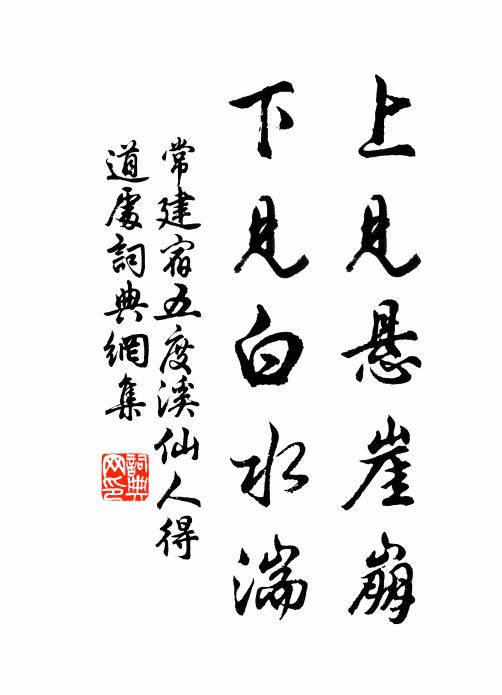 上見懸崖崩
下見白水湍
常建宿五度溪仙人得
道處詞典網集
詞典
网印